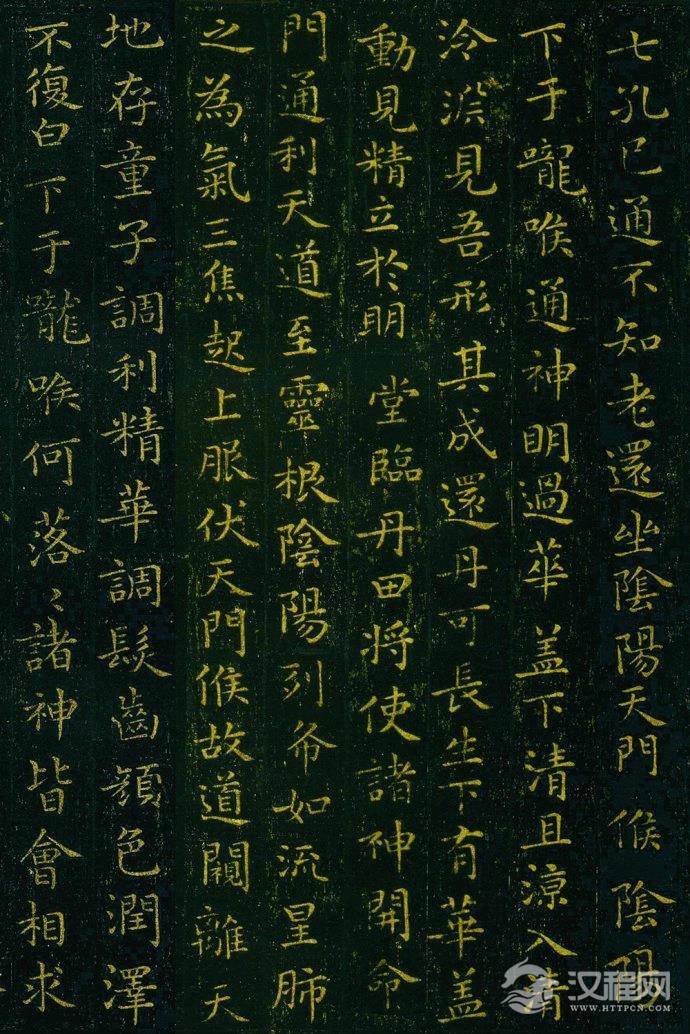 七孔已通不知老還坐陰陽天門候陰陽
下于嚨喉通神明過華盖下清且涼入清
泠淵見吾形其成還丹可長生下有華盖
動見精立於明堂臨丹田将使諸神開命
門通利天道至靈根陰陽列布如流星肺
之為氣三焦起上服伏天門候故道闚離天
地存童子調利精華調髮齒顔色潤澤
不復白下于嚨喉何落々諸神皆會相求
汉程网
HTTPCN.COM